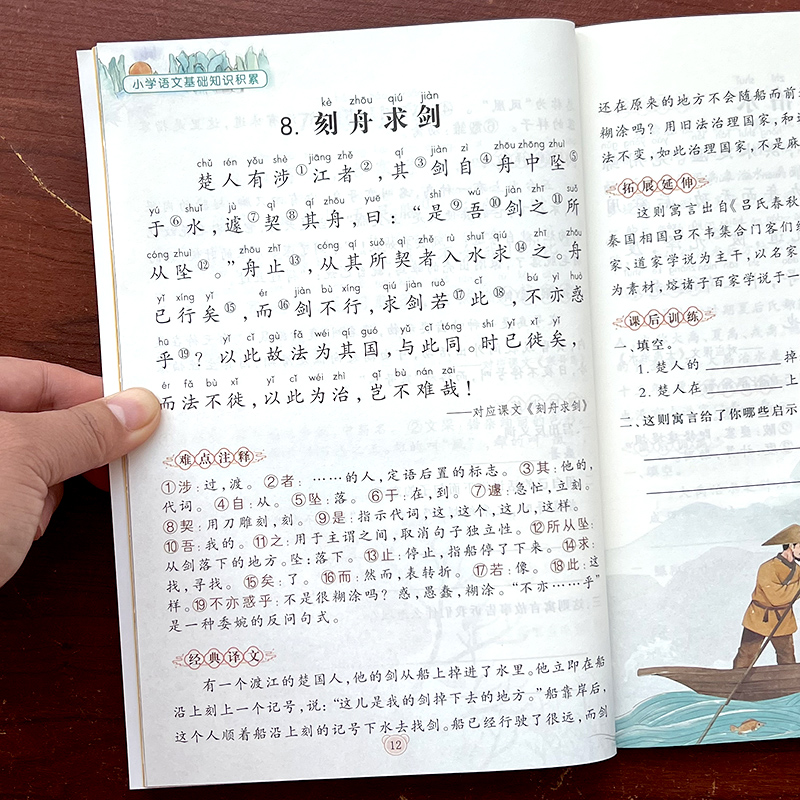 小学语文基础知识积累
kè zhōu qiú jiàn
8. 刻舟求剑
chǔ rén yǒu shè jiāng zhě qí jiàn zì zhōu zhōng zhuì
楚人有涉①江者②,其③剑自④舟中坠⑤
yú shuǐ jù qì qí zhōu yuē shì wú jiàn zhī suǒ
于⑥水,遽⑦契⑧其舟,曰:“是⑨吾⑩剑之⑪所
cóng zhuì zhōu zhǐ cóng qí suǒ qì zhě rù shuǐ qiú zhī zhōu
从坠⑫。”舟止⑬,从其所契者入水求⑭之。舟
yǐ xíng yǐ ér jiàn bù xíng qiú jiàn ruò cǐ bú yì huò
已行矣⑮,而⑯剑不行,求剑若⑰此⑱,不亦惑
hū yǐ cǐ gù fǎ wéi qí guó yǔ cǐ tóng shí yǐ xǐ yǐ
乎⑲?以此故法为其国,与此同。时已徙矣,
ér fǎ bù xǐ yǐ cǐ wéi zhì qǐ bù nán zāi
而法不徙,以此为治,岂不难哉!
——对应课文《刻舟求剑》
难点注释
①涉:过,渡。②者:……的人,定语后置的标志。③其:他的,
代词。④自:从。⑤坠:落。⑥于:在,到。⑦遽:急忙,立刻。
⑧契:用刀雕刻,刻。⑨是:指示代词,这,这个,这儿,这样。
⑩吾:我的。⑪之:用于主谓之间,取消句子独立性。⑫所从坠:
从剑落下的地方。坠:落下。⑬止:停止,指船停了下来。⑭求:
找,寻找。⑮矣:了。⑯而:然而,表转折。⑰若:像。⑱此:这
样。⑲不亦惑乎:不是很糊涂吗?惑,愚蠢,糊涂。“不亦……乎”
是一种委婉的反问句式。
经典译文
有一个渡江的楚国人,他的剑从船上掉进了水里。他立即在船
沿上刻上一个记号,说:“这儿是我的剑掉下去的地方。”船靠岸后,
这个人顺着船沿上刻的记号下水去找剑。船已经行驶了很远,而剑
12
还在原来的地方不会随船而前
糊涂吗?用旧法治理国家,和
法不变,如此治理国家,不是麻
拓展延伸
这则寓言出自《吕氏春秋
秦国相国吕不韦集合门客们
家、道家学说为主干,以名家
为素材,熔诸子百家学说于一
课后训练
一、填空。
1. 楚人的 掉
2. 楚人在 上
二、这则寓言给了你哪些启示